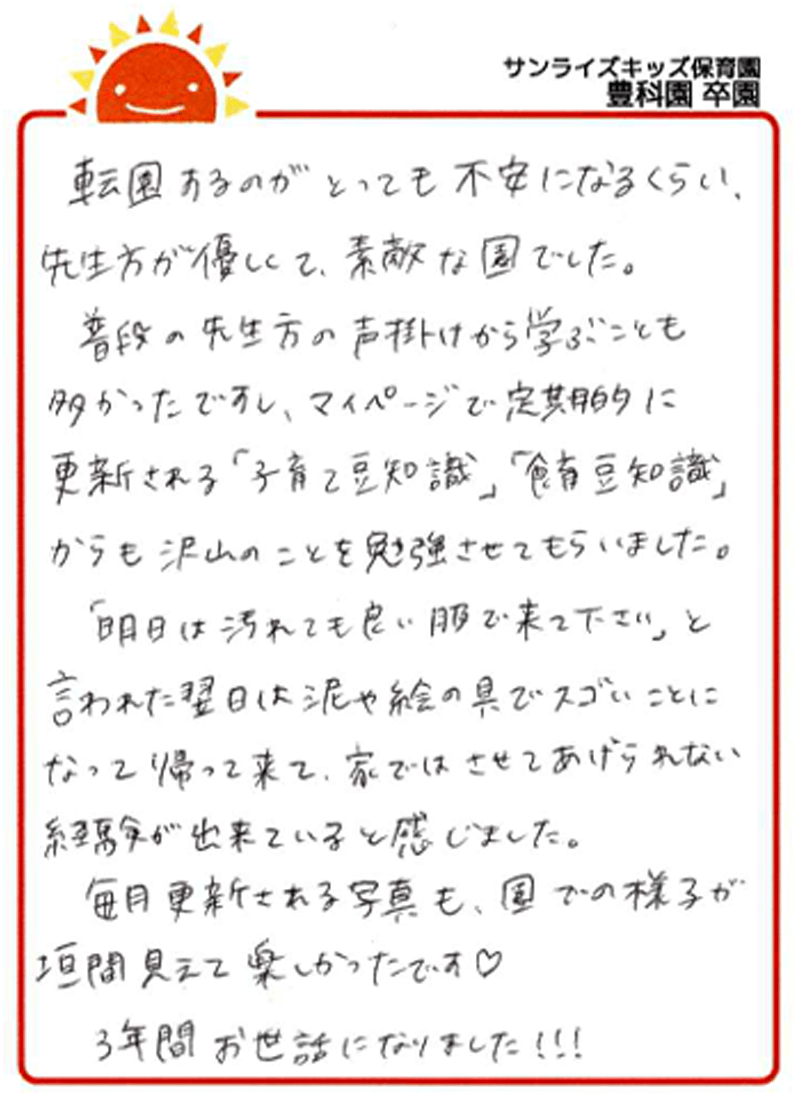 サンライズキッズ保育園
豊科園 卒園
転園するのがとっても不安になるくらい、
先生方が優しくて、素敵な園でした。
普段の先生方の声掛けから学ぶことも
多かったですし、マイページで定期的に
更新される「子育て豆知識」「食育豆知識」
からも沢山のことを勉強させてもらいました。
「明日は汚れても良い服で来て下さい」と
言われた翌日は泥や絵の具でスゴいことに
なって帰って来て、家ではさせてあげられない
経験が出来ていると感じました。
毎月更新される写真も、園での様子が
垣間見えて楽しかったです♡
3年間お世話になりました!!!